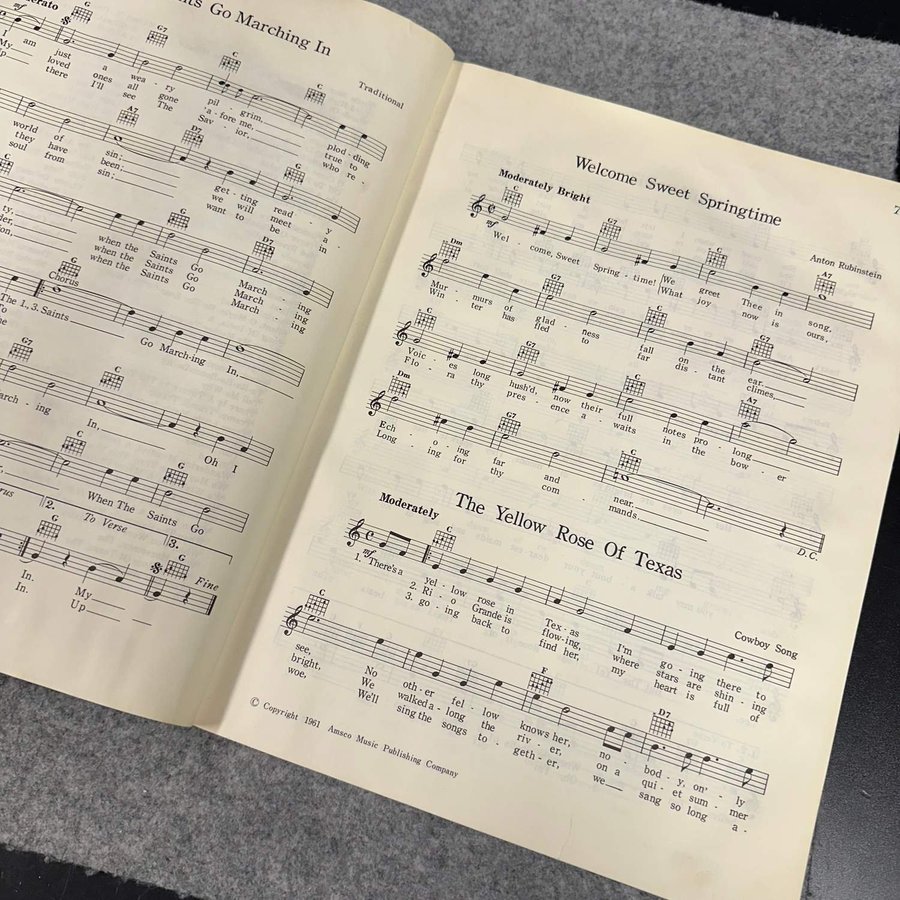 Go Marching In
Traditional
mf
C
G7
C
C
I am just a wea - ry pil - grim, plod - ding
loved ones all gone a - fore me, true to
there I'll see The Sav - ior, who re -
A7
D7
G
world of sin; get - ting read - y
they have been; we will meet a -
soul from sin; want to be in
C
G
D7
when the Saints Go March - ing
when the Saints Go March - ing
when the Saints Go March - ing
G
Chorus
The 1., 3. Saints Go March-ing In,
G
C
ing In, Oh I
G
G
When The Saints Go
2.
To Verse
3.
G
G
Fine
In. My
In. Up
Welcome Sweet Springtime
7
Moderately Bright
Anton Rubinstein
C
G7
C
A7
mf
Wel - come, Sweet Spring - time! We greet Thee in song,
What joy now is ours,
Dm
G7
C
G7
Mur - murs of glad - ness fall on the ear.
Win - ter has fled to far dis - tant climes,
C
G7
C
A7
Voic - es long hush'd, now their full notes pro - long
Flo - ra thy pres - ence a - waits in the bow - er
Dm
G7
C
Ech - o - ing far and near.
Long - ing for thy com - mands.
D.C.
The Yellow Rose Of Texas
Moderately
Cowboy Song
C
mf
1. There's a yel - low rose in Tex - as I'm go - ing there to
2. Ri - o Grande is flow - ing, where stars are shin - ing
3. go - ing back to find her, my heart is full of
C
F
D7
see, No oth - er fel - low knows her, no - bod - y, on' - ly
bright, We walked a - long the riv - er, on a qui - et sum - mer
woe, We'll sing the songs to - geth - er, we sang so long a -
© Copyright 1961 Amsco Music Publishing Company